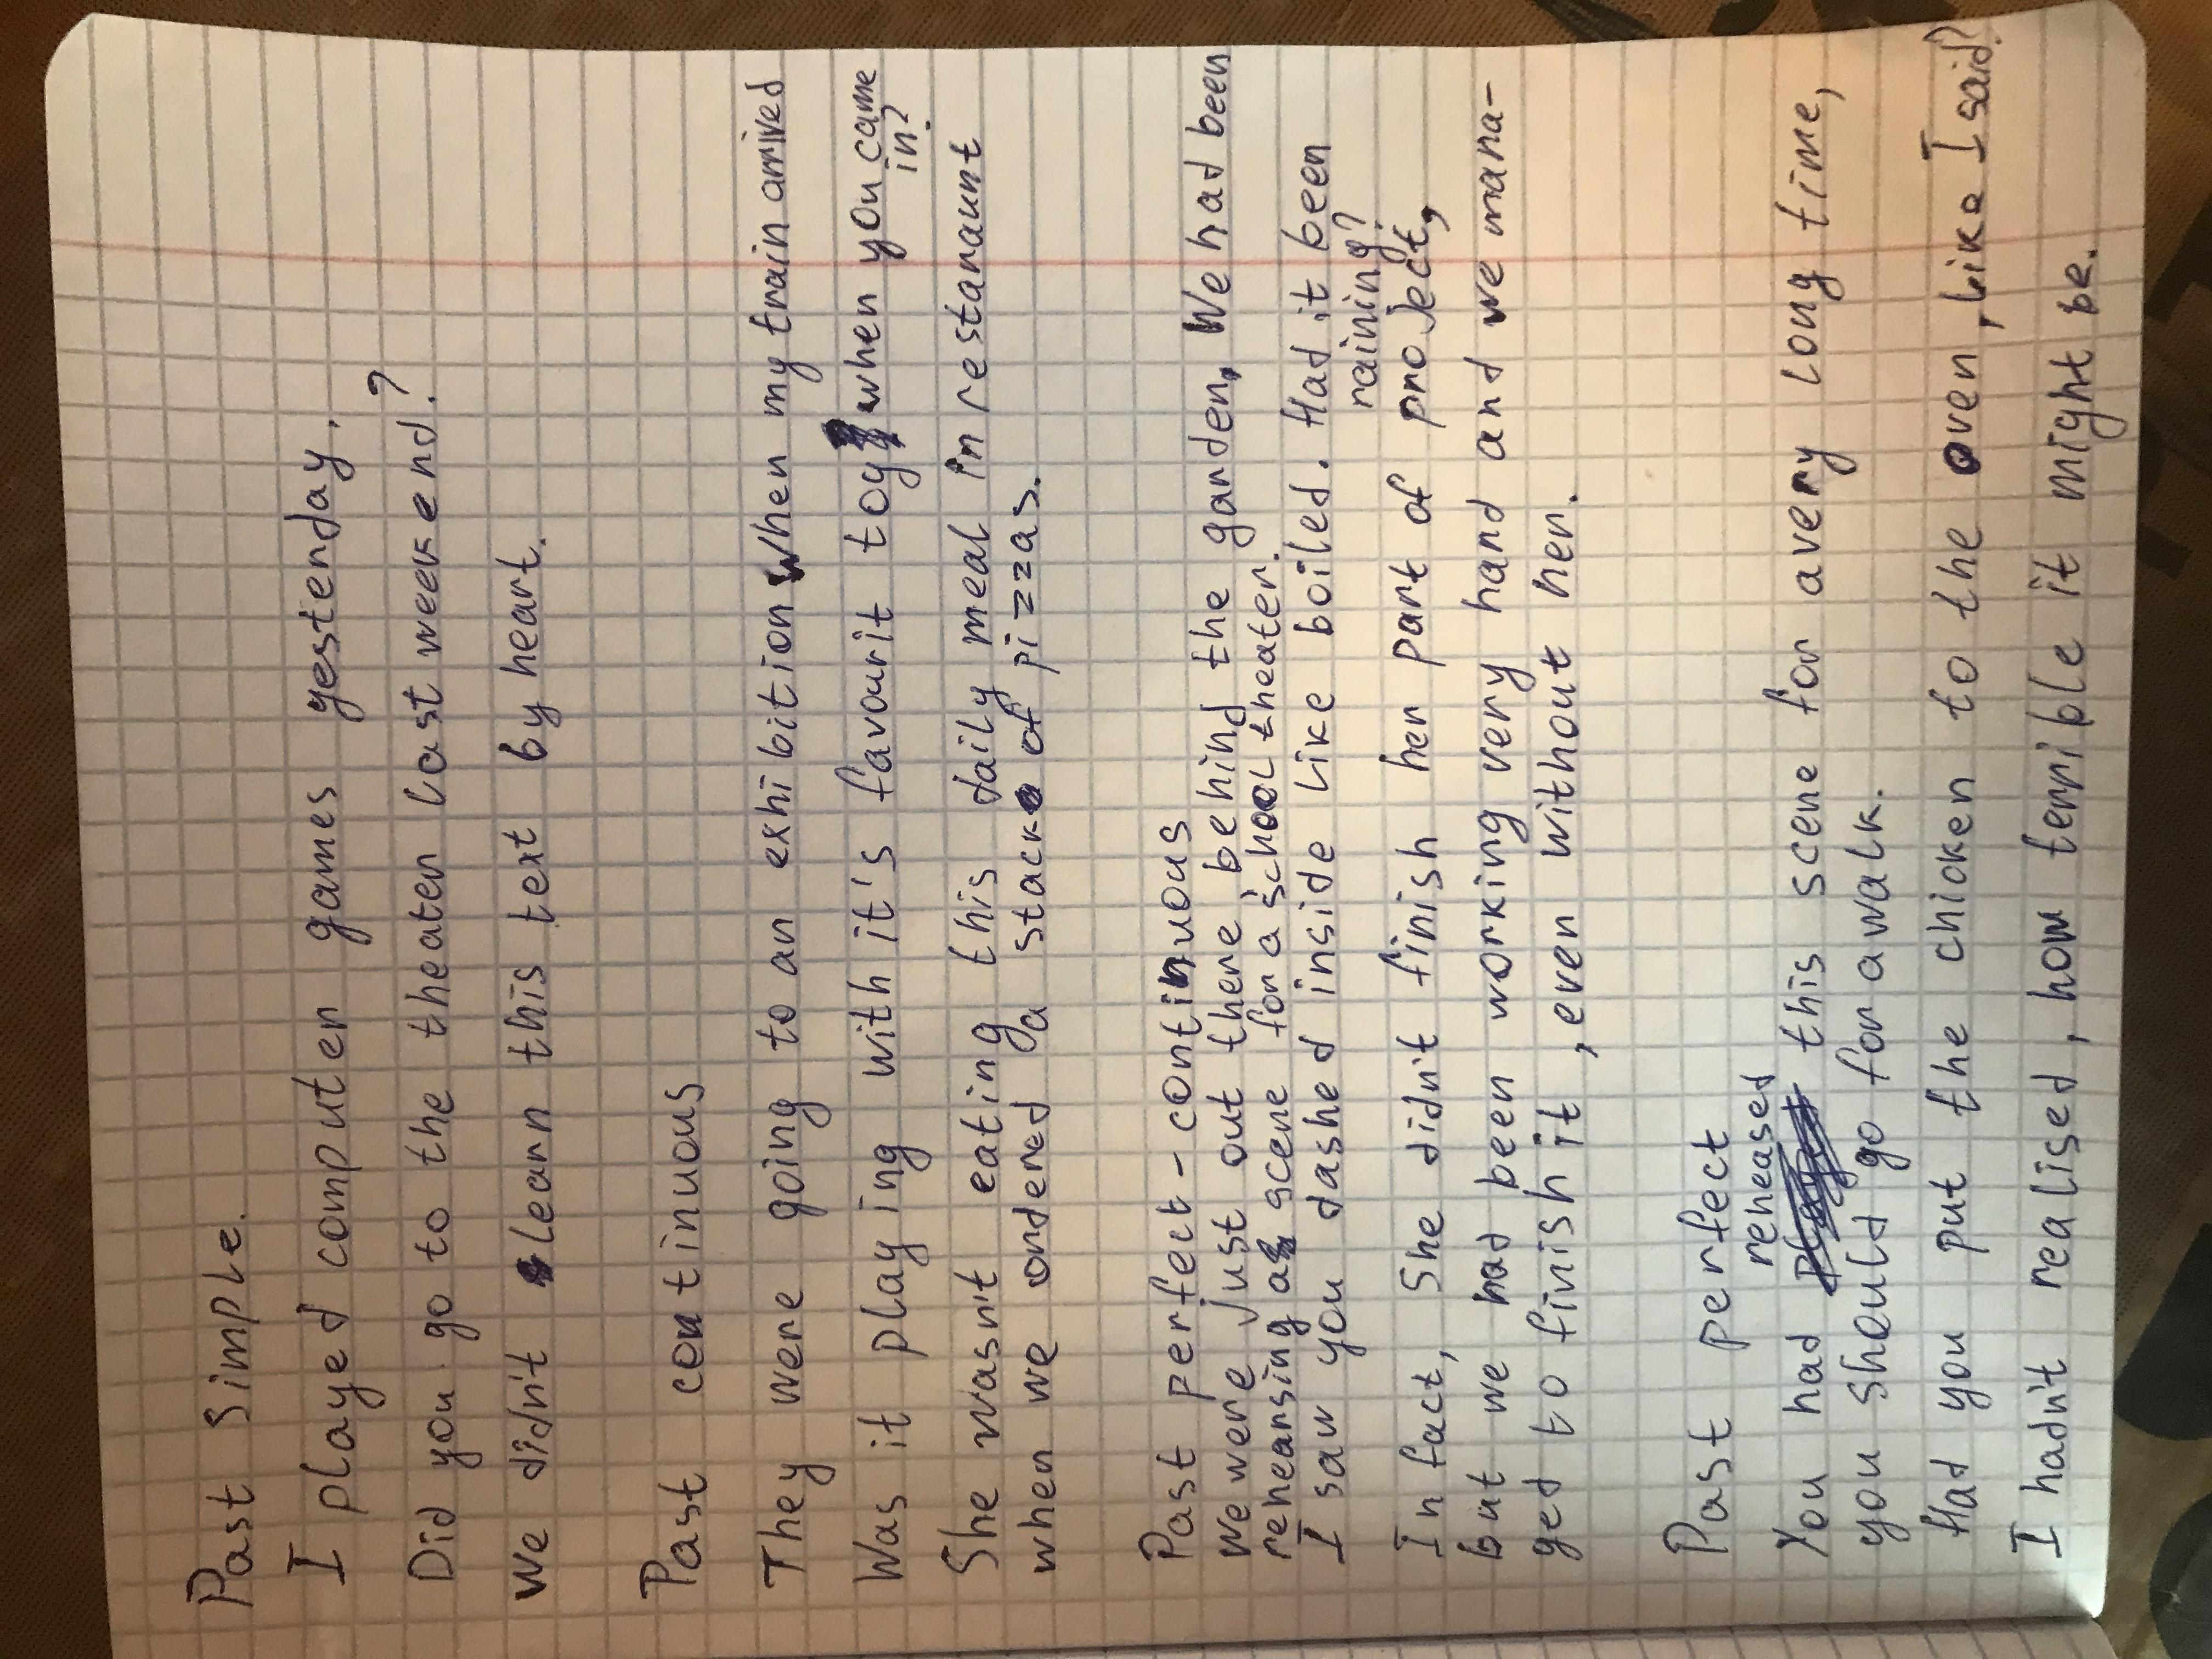 Past simple.
I played computer games yesterday.
Did you go to the theater last weekend?
We didn't learn this text by heart.
Past continuous
They were going to an exhibition when my train arrived
Was it playing with it's favourit toy when you came
in?
She wasn't eating this daily meal in restaraunt
when we ordered a stack of pizzas.
Past perfect-continuous
We were just out there behind the garden, We had been
rehearsing a scene for a school theater.
I saw you dashed inside like boiled. Had it been
raining?
In fact, She didn't finish her part of project,
but we had been working very hard and we mana-
ged to finish it, even without her.
Past perfect
You had reheased this scene for a very long time,
you should go for a walk.
Had you put the chicken to the oven, Like I said?
I hadn't realised, how terrible it might be.